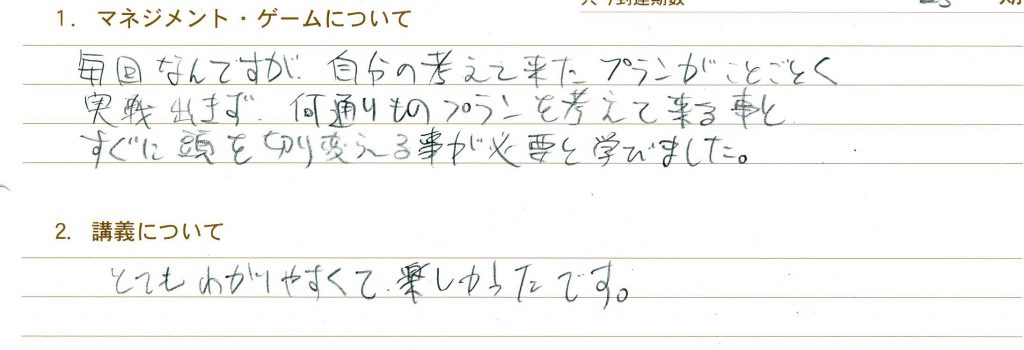 1. マネジメント・ゲームについて
毎回なんですが、自分の考えて来たプランがことごとく
実戦出まず、何通りものプランを考えて来る事と
すぐに頭を切り変える事が必要と学びました。
2. 講義について
とてもわかりやすくて、楽しかったです。